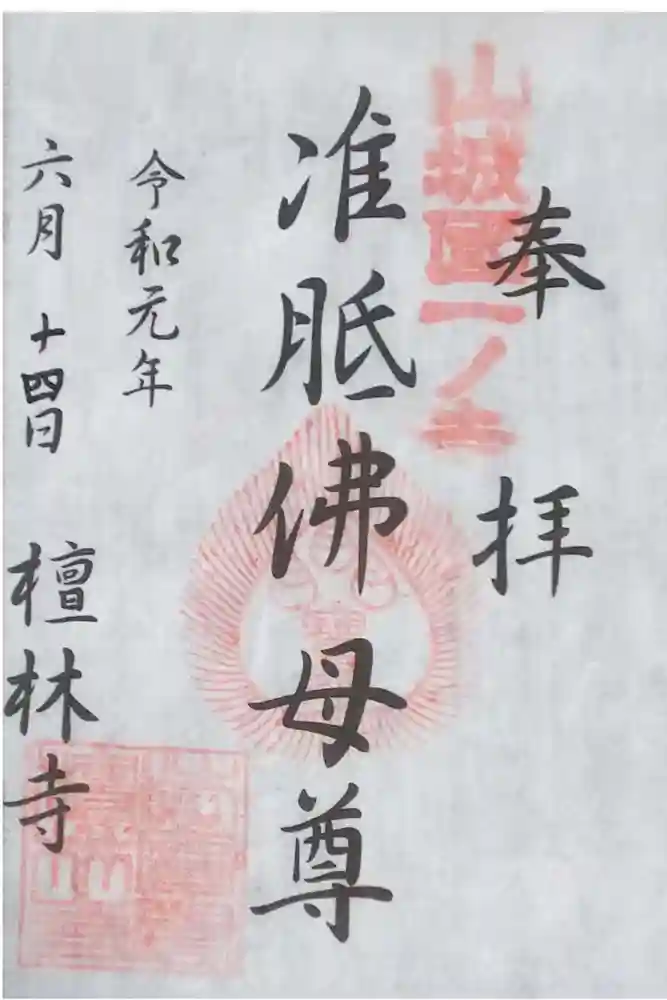 奉拝
山城国一ノ寺
准胝佛母尊
令和元年
六月十四日
檀林寺